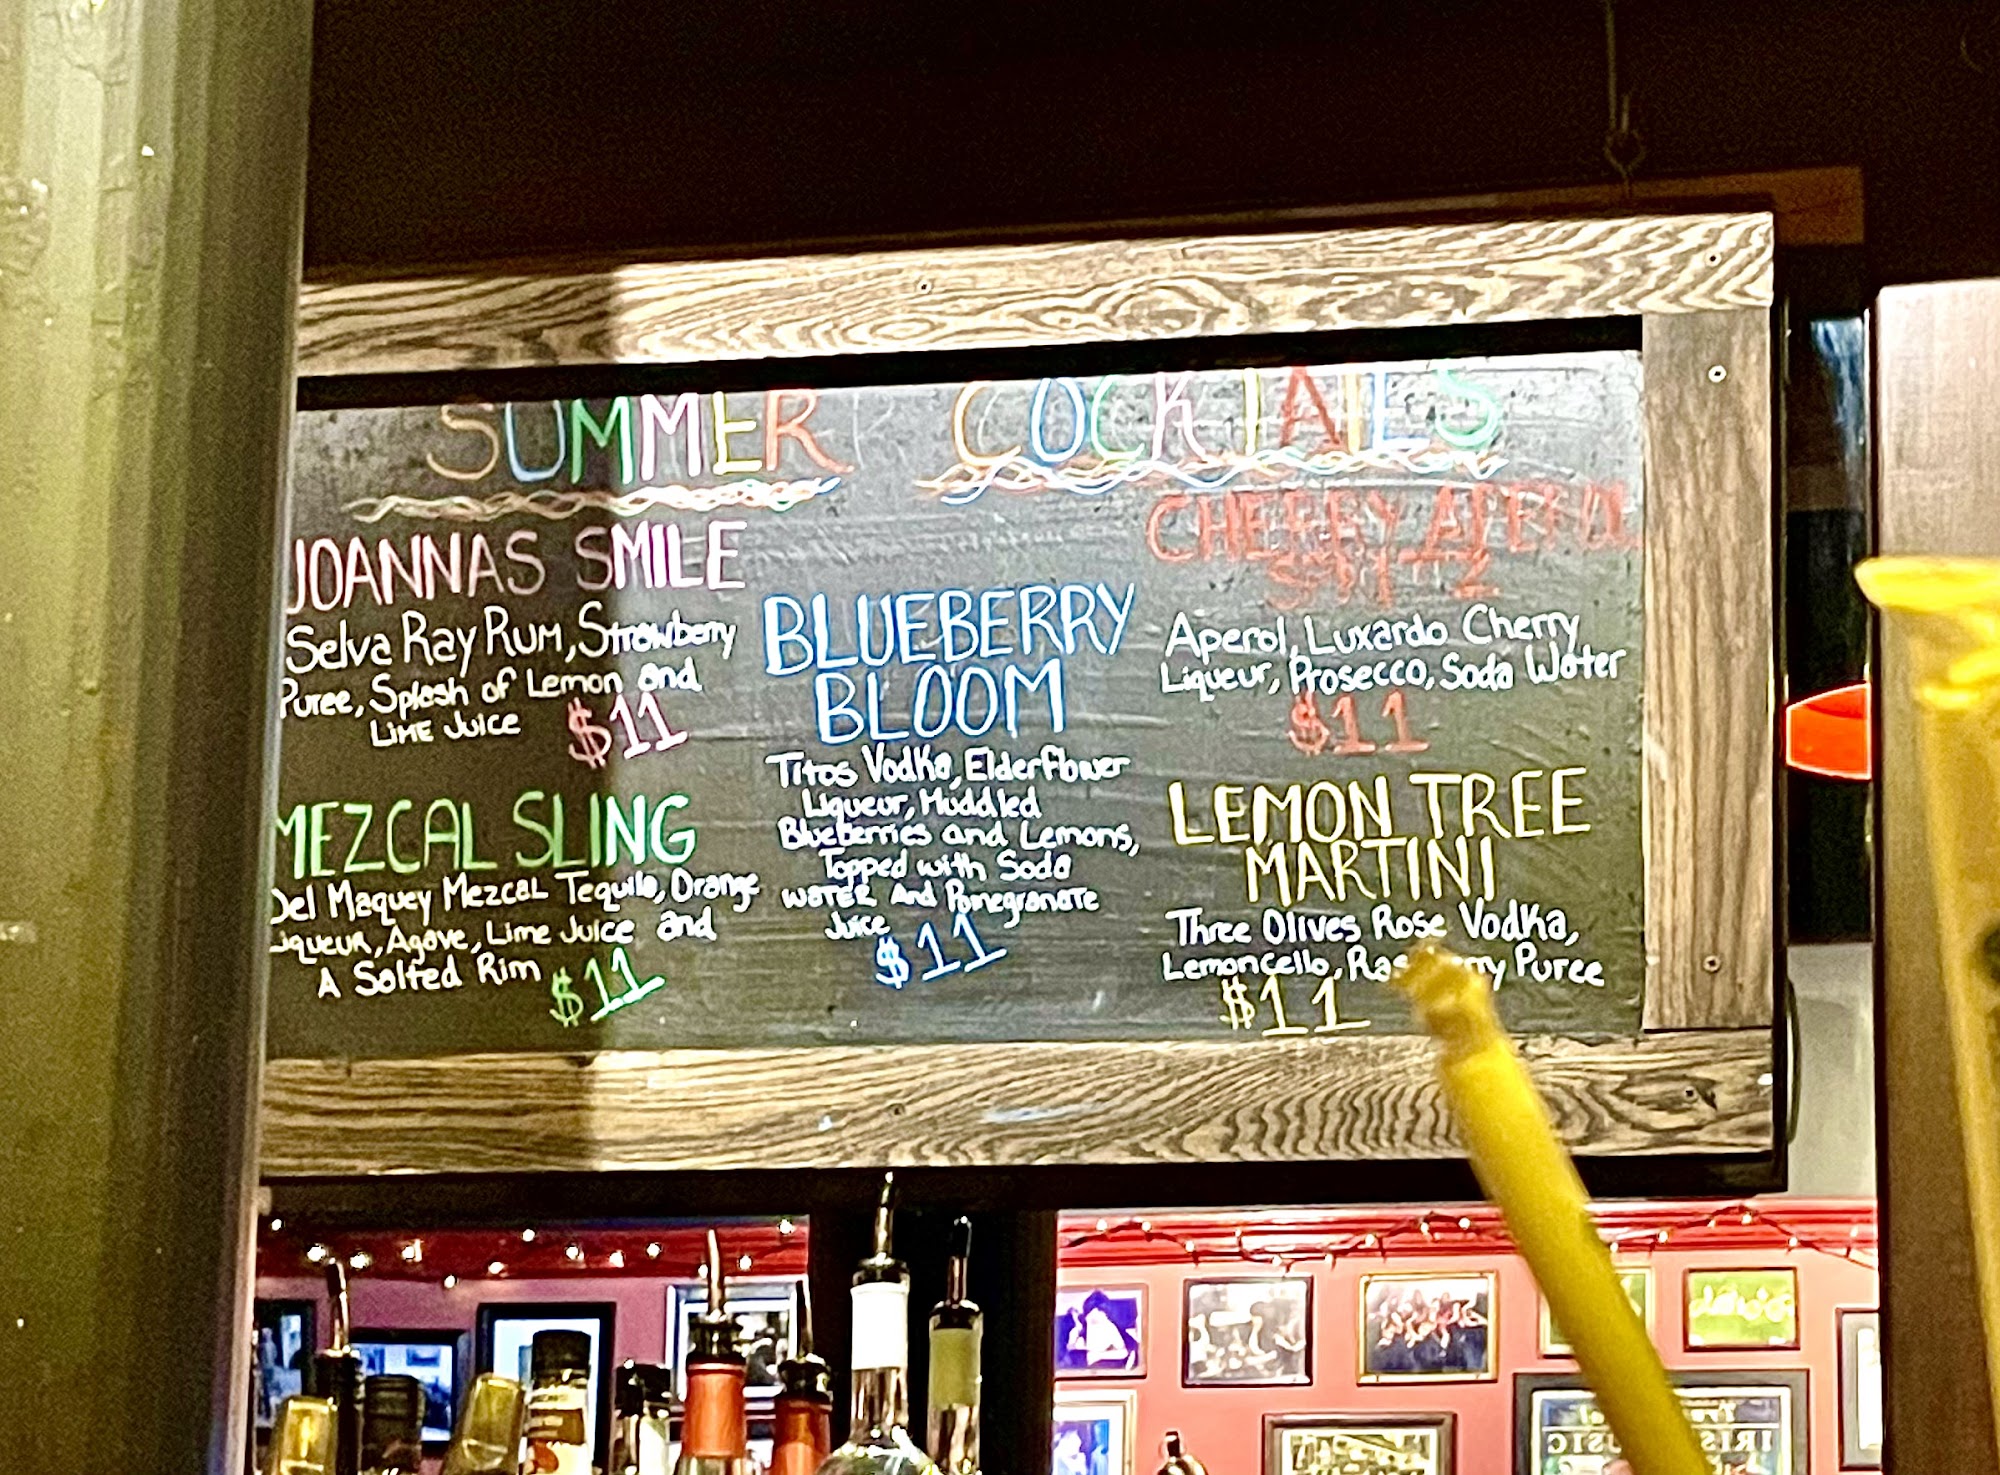 SUMMER COCKTAILS
JOANNAS SMILE
Selva Ray Rum, Strawberry
Puree, Splash of Lemon and
Lime Juice $11
MEZCAL SLING
Del Maquey Mezcal Tequila, Orange
Liqueur, Agave, Lime Juice and
A Salted Rim $11
BLUEBERRY
BLOOM
Titos Vodka, Elderflower
Liqueur, Muddled
Blueberries and Lemons,
Topped with Soda
Water And Pomegranate
Juice
$11
CHERRY APEROL
SPITZ
Aperol, Luxardo Cherry
Liqueur, Prosecco, Soda Water
$11
LEMON TREE
MARTINI
Three Olives Rose Vodka,
Lemoncello, Raspberry Puree
$11